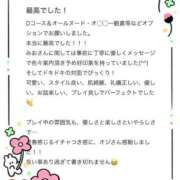 最高でした！
Dコース＆オールヌード・オ◯◯ー観賞等などオプションでお願いしました。
本当に最高でした！！！！
みおさんに関しては事前に丁寧に優しくメッセージで色々案内頂き予め好印象を持っていました(^^)
そしてドキドキの対面でびっくり！
可愛い、スタイル良い、肌綺麗、礼儀正しい、優しい、お世辞なし、プレイ良しでパーフェクトでした
プレイ中の雰囲気も、優しさと楽しさとやらしさで…
興奮感じるイチャつき感に、オジさん感動しました
良い事あり過ぎて書き切れません